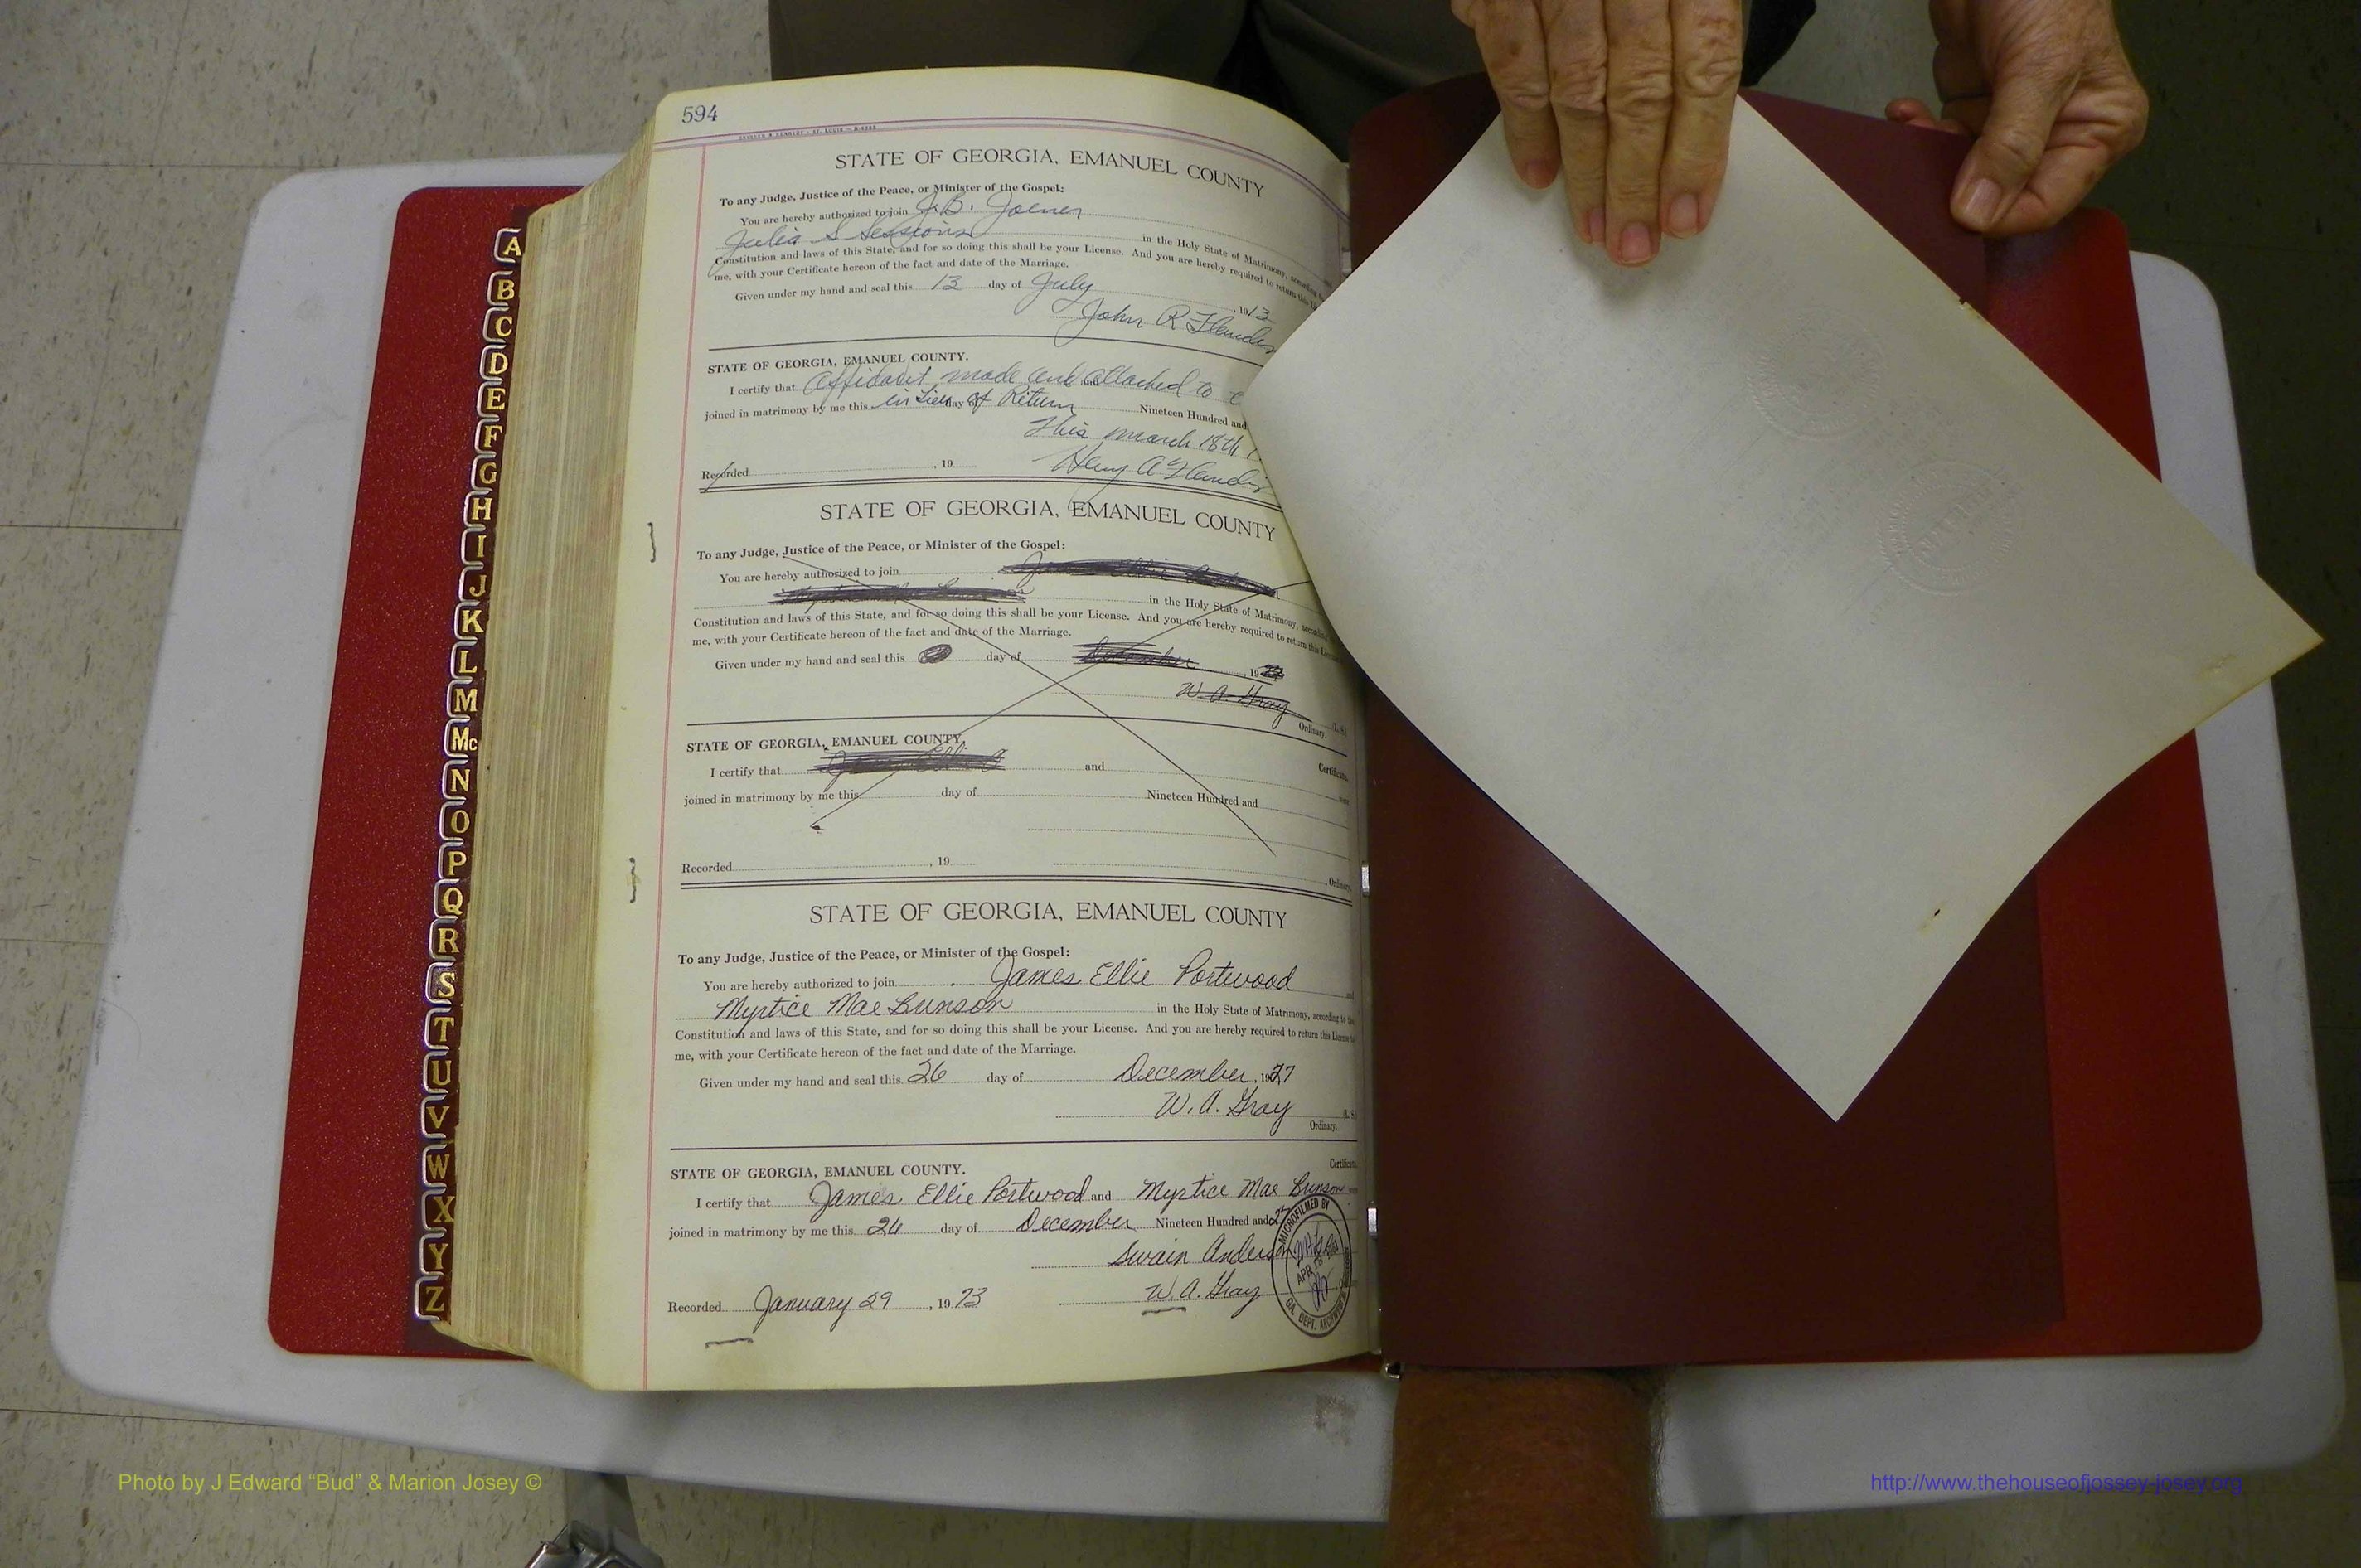 594
STATE OF GEORGIA, EMANUEL COUNTY
To any Judge, Justice of the Peace, or Minister of the Gospel:
You are hereby authorized to join J.B. Joiner
Julia S Sessions in the Holy State of Matrimony,
Constitution and laws of this State, and for so doing this shall be your License. And you are hereby required to return this
me, with your Certificate hereon of the fact and date of the Marriage.
Given under my hand and seal this 13 day of July, 1913
John R Flanders
STATE OF GEORGIA, EMANUEL COUNTY.
I certify that Affidavit made and and attached to
joined in matrimony by me this in lieu day of of Return Nineteen Hundred and
This march 18th
Henry A Flanders
Recorded , 19
STATE OF GEORGIA, EMANUEL COUNTY
To any Judge, Justice of the Peace, or Minister of the Gospel:
You are hereby authorized to join
in the Holy State of Matrimony, according
Constitution and laws of this State, and for so doing this shall be your License. And you are hereby required to return this
me, with your Certificate hereon of the fact and date of the Marriage.
Given under my hand and seal this day of December , 19
W. A. Gray (L. S.)
Ordinary.
STATE OF GEORGIA, EMANUEL COUNTY.
Certificate.
I certify that and
joined in matrimony by me this day of Nineteen Hundred and
Recorded , 19
Ordinary
STATE OF GEORGIA, EMANUEL COUNTY
To any Judge, Justice of the Peace, or Minister of the Gospel:
You are hereby authorized to join James Ellie Portwood and
Myrtice Mae Bunson in the Holy State of Matrimony, according to the
Constitution and laws of this State, and for so doing this shall be your License. And you are hereby required to return this License to
me, with your Certificate hereon of the fact and date of the Marriage.
Given under my hand and seal this 26 day of December, 1927
W. A. Gray (L. S.)
Ordinary.
STATE OF GEORGIA, EMANUEL COUNTY.
Certificate.
I certify that James Ellie Portwood and Myrtice Mae Bunson were
joined in matrimony by me this 26 day of December Nineteen Hundred and 27
Swain Anderson
Recorded January 29, 1973 W. A. Gray
MICROFILMED BY
APR 18
GA. DEPT. ARCHIVES
A
B
C
D
E
F
G
H
I
J
K
L
M
Mc
N
O
P
Q
R
S
T
U
V
W
X
Y
Z
Photo by J Edward “Bud” & Marion Josey ©
http://www.thehouseofjossey-josey.org